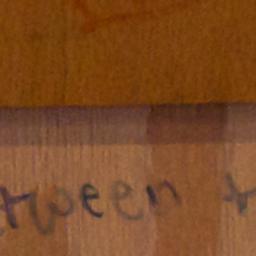 tween t